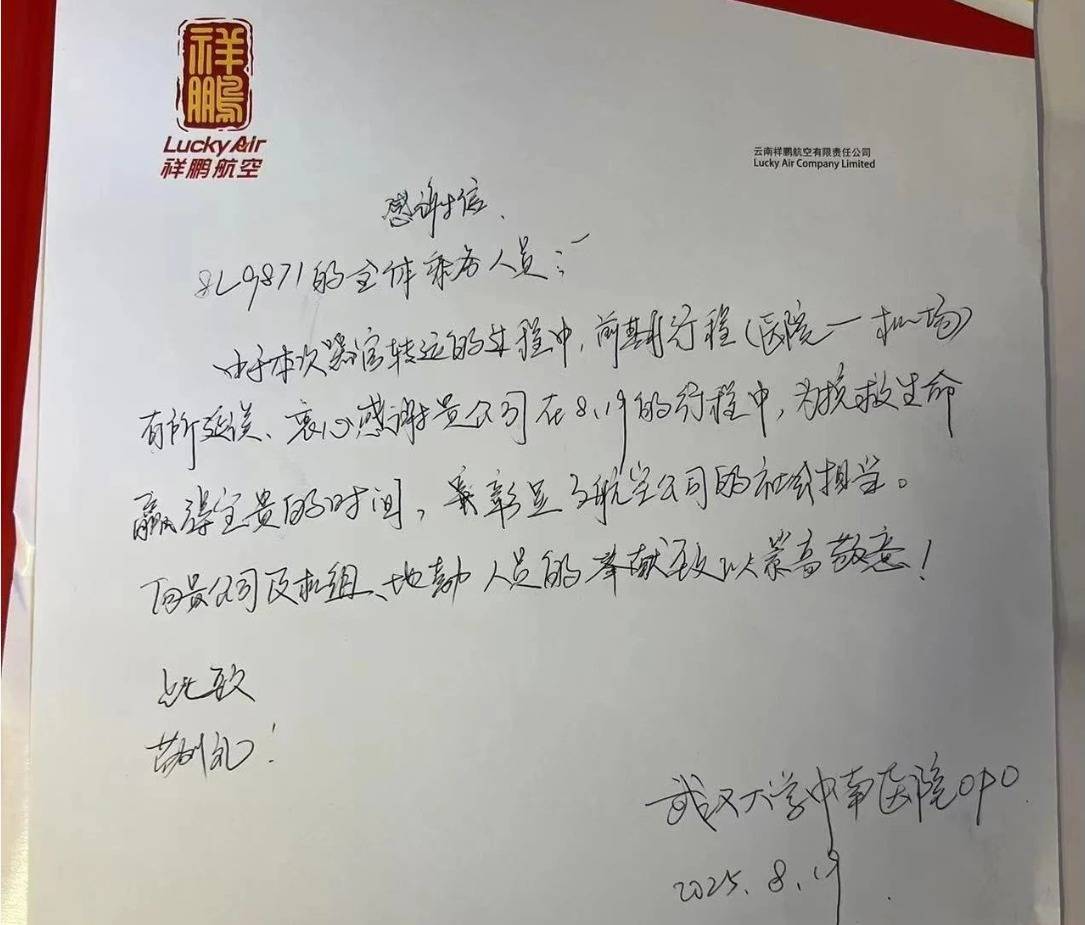 祥鹏
Lucky Air
祥鹏航空
云南祥鹏航空有限责任公司
Lucky Air Company Limited
感谢信
8L9871的全体乘务人员:
由于本次器官转运的过程中,前期行程(医院—机场)
有所延误、衷心感谢贵公司在8.19的行程中,为挽救生命
赢得宝贵的时间,彰显了航空公司的社会担当。
向贵公司及机组、地勤人员的奉献致以崇高敬意!
此致
敬礼!
武汉大学中南医院OPO
2025.8.19